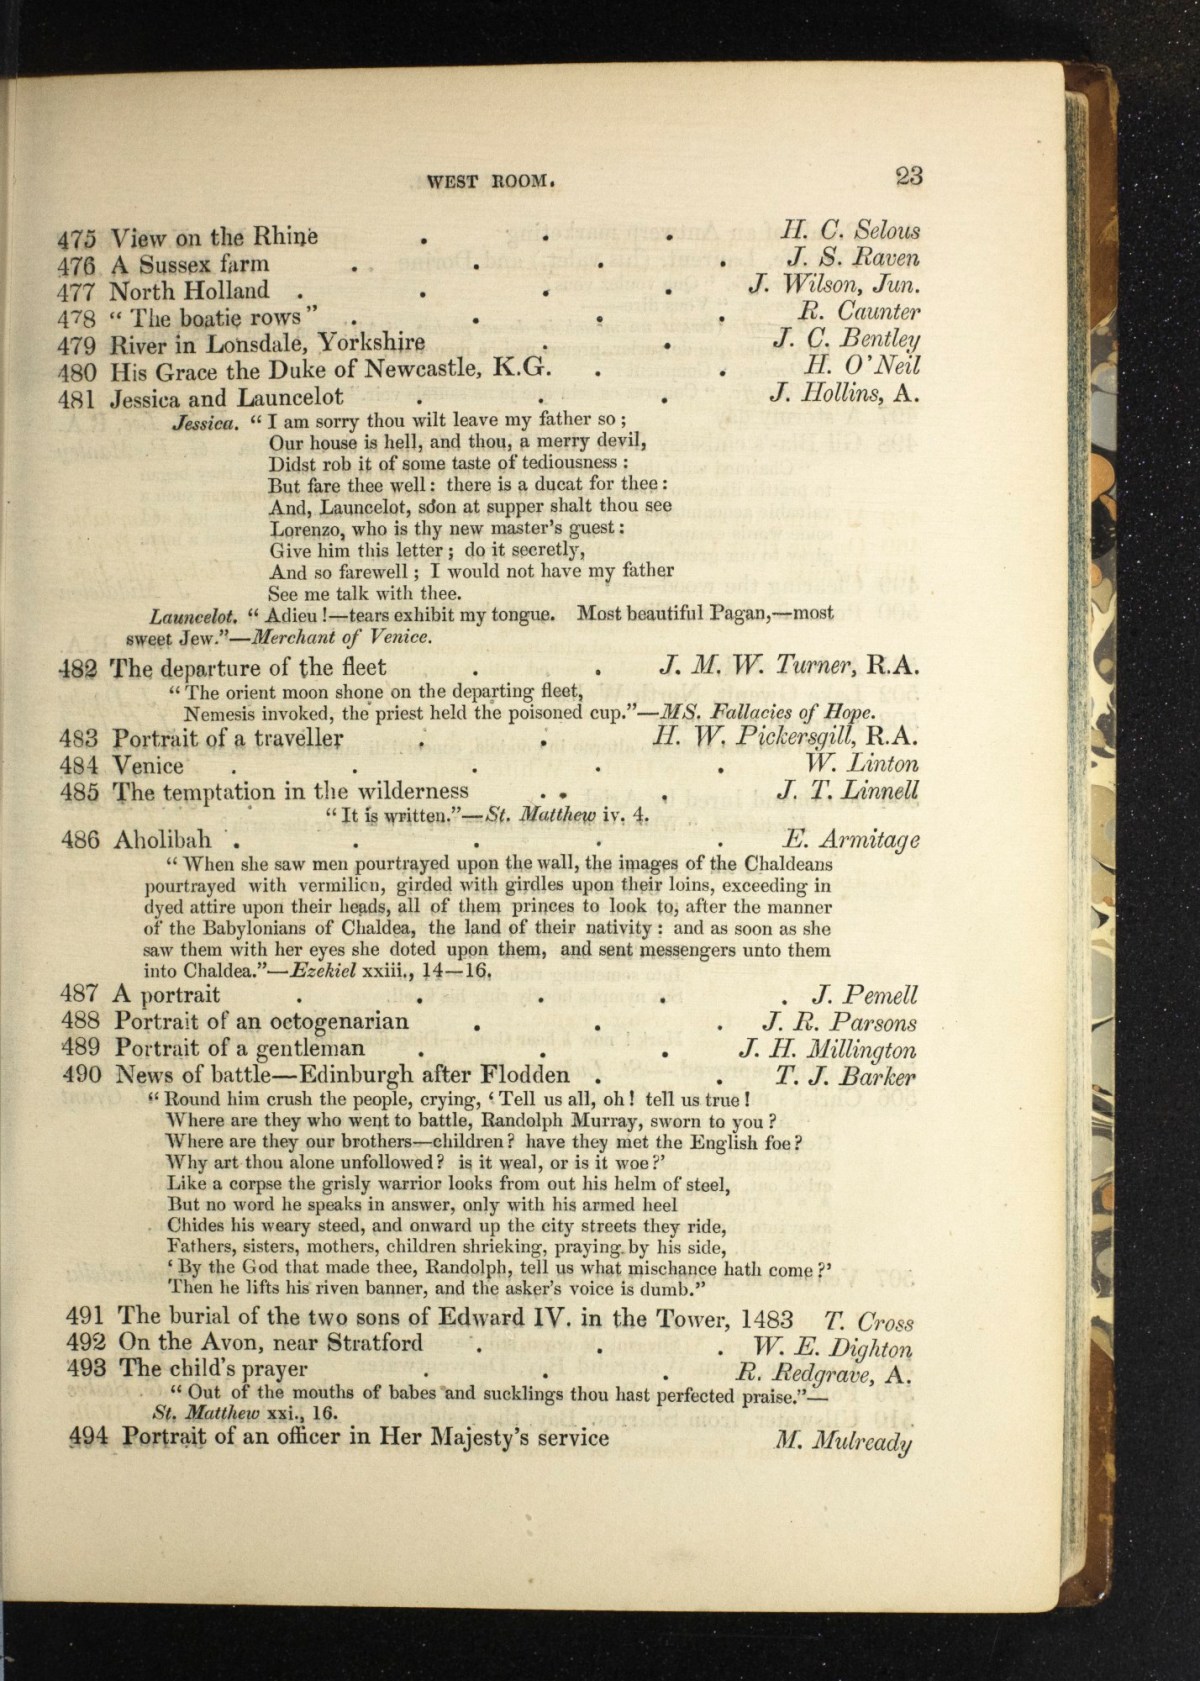 WEST ROOM. 23
475 View on the Rhine . . . H. C. Selous
476 A Sussex farm . . . . J. S. Raven
477 North Holland . . . . J. Wilson, Jun.
478 “ The boatie rows ” . . . . R. Caunter
479 River in Lonsdale, Yorkshire . . J. C. Bentley
480 His Grace the Duke of Newcastle, K.G. . . H. O'Neil
481 Jessica and Launcelot . . . J. Hollins, A.
Jessica. “ I am sorry thou wilt leave my father so ;
Our house is hell, and thou, a merry devil,
Didst rob it of some taste of tediousness :
But fare thee well : there is a ducat for thee :
And, Launcelot, soon at supper shalt thou see
Lorenzo, who is thy new master's guest :
Give him this letter ; do it secretly,
And so farewell ; I would not have my father
See me talk with thee.
Launcelot. “ Adieu !—tears exhibit my tongue. Most beautiful Pagan,—most
sweet Jew.”—Merchant of Venice.
482 The departure of the fleet . . J. M. W. Turner, R.A.
“ The orient moon shone on the departing fleet,
Nemesis invoked, the priest held the poisoned cup.”—MS. Fallacies of Hope.
483 Portrait of a traveller . . H. W. Pickersgill, R.A.
484 Venice . . . . . W. Linton
485 The temptation in the wilderness . . . J. T. Linnell
“ It is written.”—St. Matthew iv. 4.
486 Aholibah . . . . . E. Armitage
“ When she saw men pourtrayed upon the wall, the images of the Chaldeans
pourtrayed with vermilion, girded with girdles upon their loins, exceeding in
dyed attire upon their heads, all of them princes to look to, after the manner
of the Babylonians of Chaldea, the land of their nativity : and as soon as she
saw them with her eyes she doted upon them, and sent messengers unto them
into Chaldea.”—Ezekiel xxiii., 14—16.
487 A portrait . . . . . J. Pemell
488 Portrait of an octogenarian . . . J. R. Parsons
489 Portrait of a gentleman . . . J. H. Millington
490 News of battle—Edinburgh after Flodden . . T. J. Barker
“ Round him crush the people, crying, ‘ Tell us all, oh ! tell us true !
Where are they who went to battle, Randolph Murray, sworn to you ?
Where are they our brothers—children ? have they met the English foe ?
Why art thou alone unfollowed ? is it weal, or is it woe ?’
Like a corpse the grisly warrior looks from out his helm of steel,
But no word he speaks in answer, only with his armed heel
Chides his weary steed, and onward up the city streets they ride,
Fathers, sisters, mothers, children shrieking, praying by his side,
‘ By the God that made thee, Randolph, tell us what mischance hath come ?’
Then he lifts his riven banner, and the asker's voice is dumb.”
491 The burial of the two sons of Edward IV. in the Tower, 1483 T. Cross
492 On the Avon, near Stratford . . . W. E. Dighton
493 The child's prayer . . . R. Redgrave, A.
“ Out of the mouths of babes and sucklings thou hast perfected praise.”—
St. Matthew xxi., 16.
494 Portrait of an officer in Her Majesty's service M. Mulready